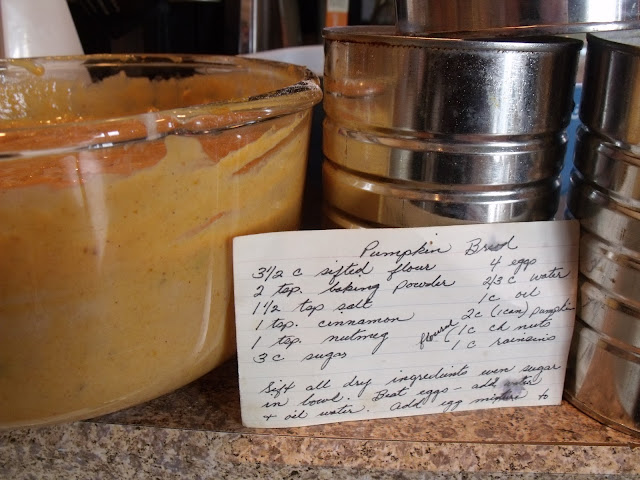 Pumpkin Bread
3 1/2 c sifted flour
2 tsp. baking powder
1 1/2 tsp salt
1 tsp. cinnamon
1 tsp. nutmeg
3 c sugar
4 eggs
2/3 c water
1 c oil
2c (1 can) pumpkin
floured (1c ch nuts
1 c rainsins
Sift all dry ingredients even sugar
in bowl. Beat eggs - add water
+ oil water. Add egg mixture to